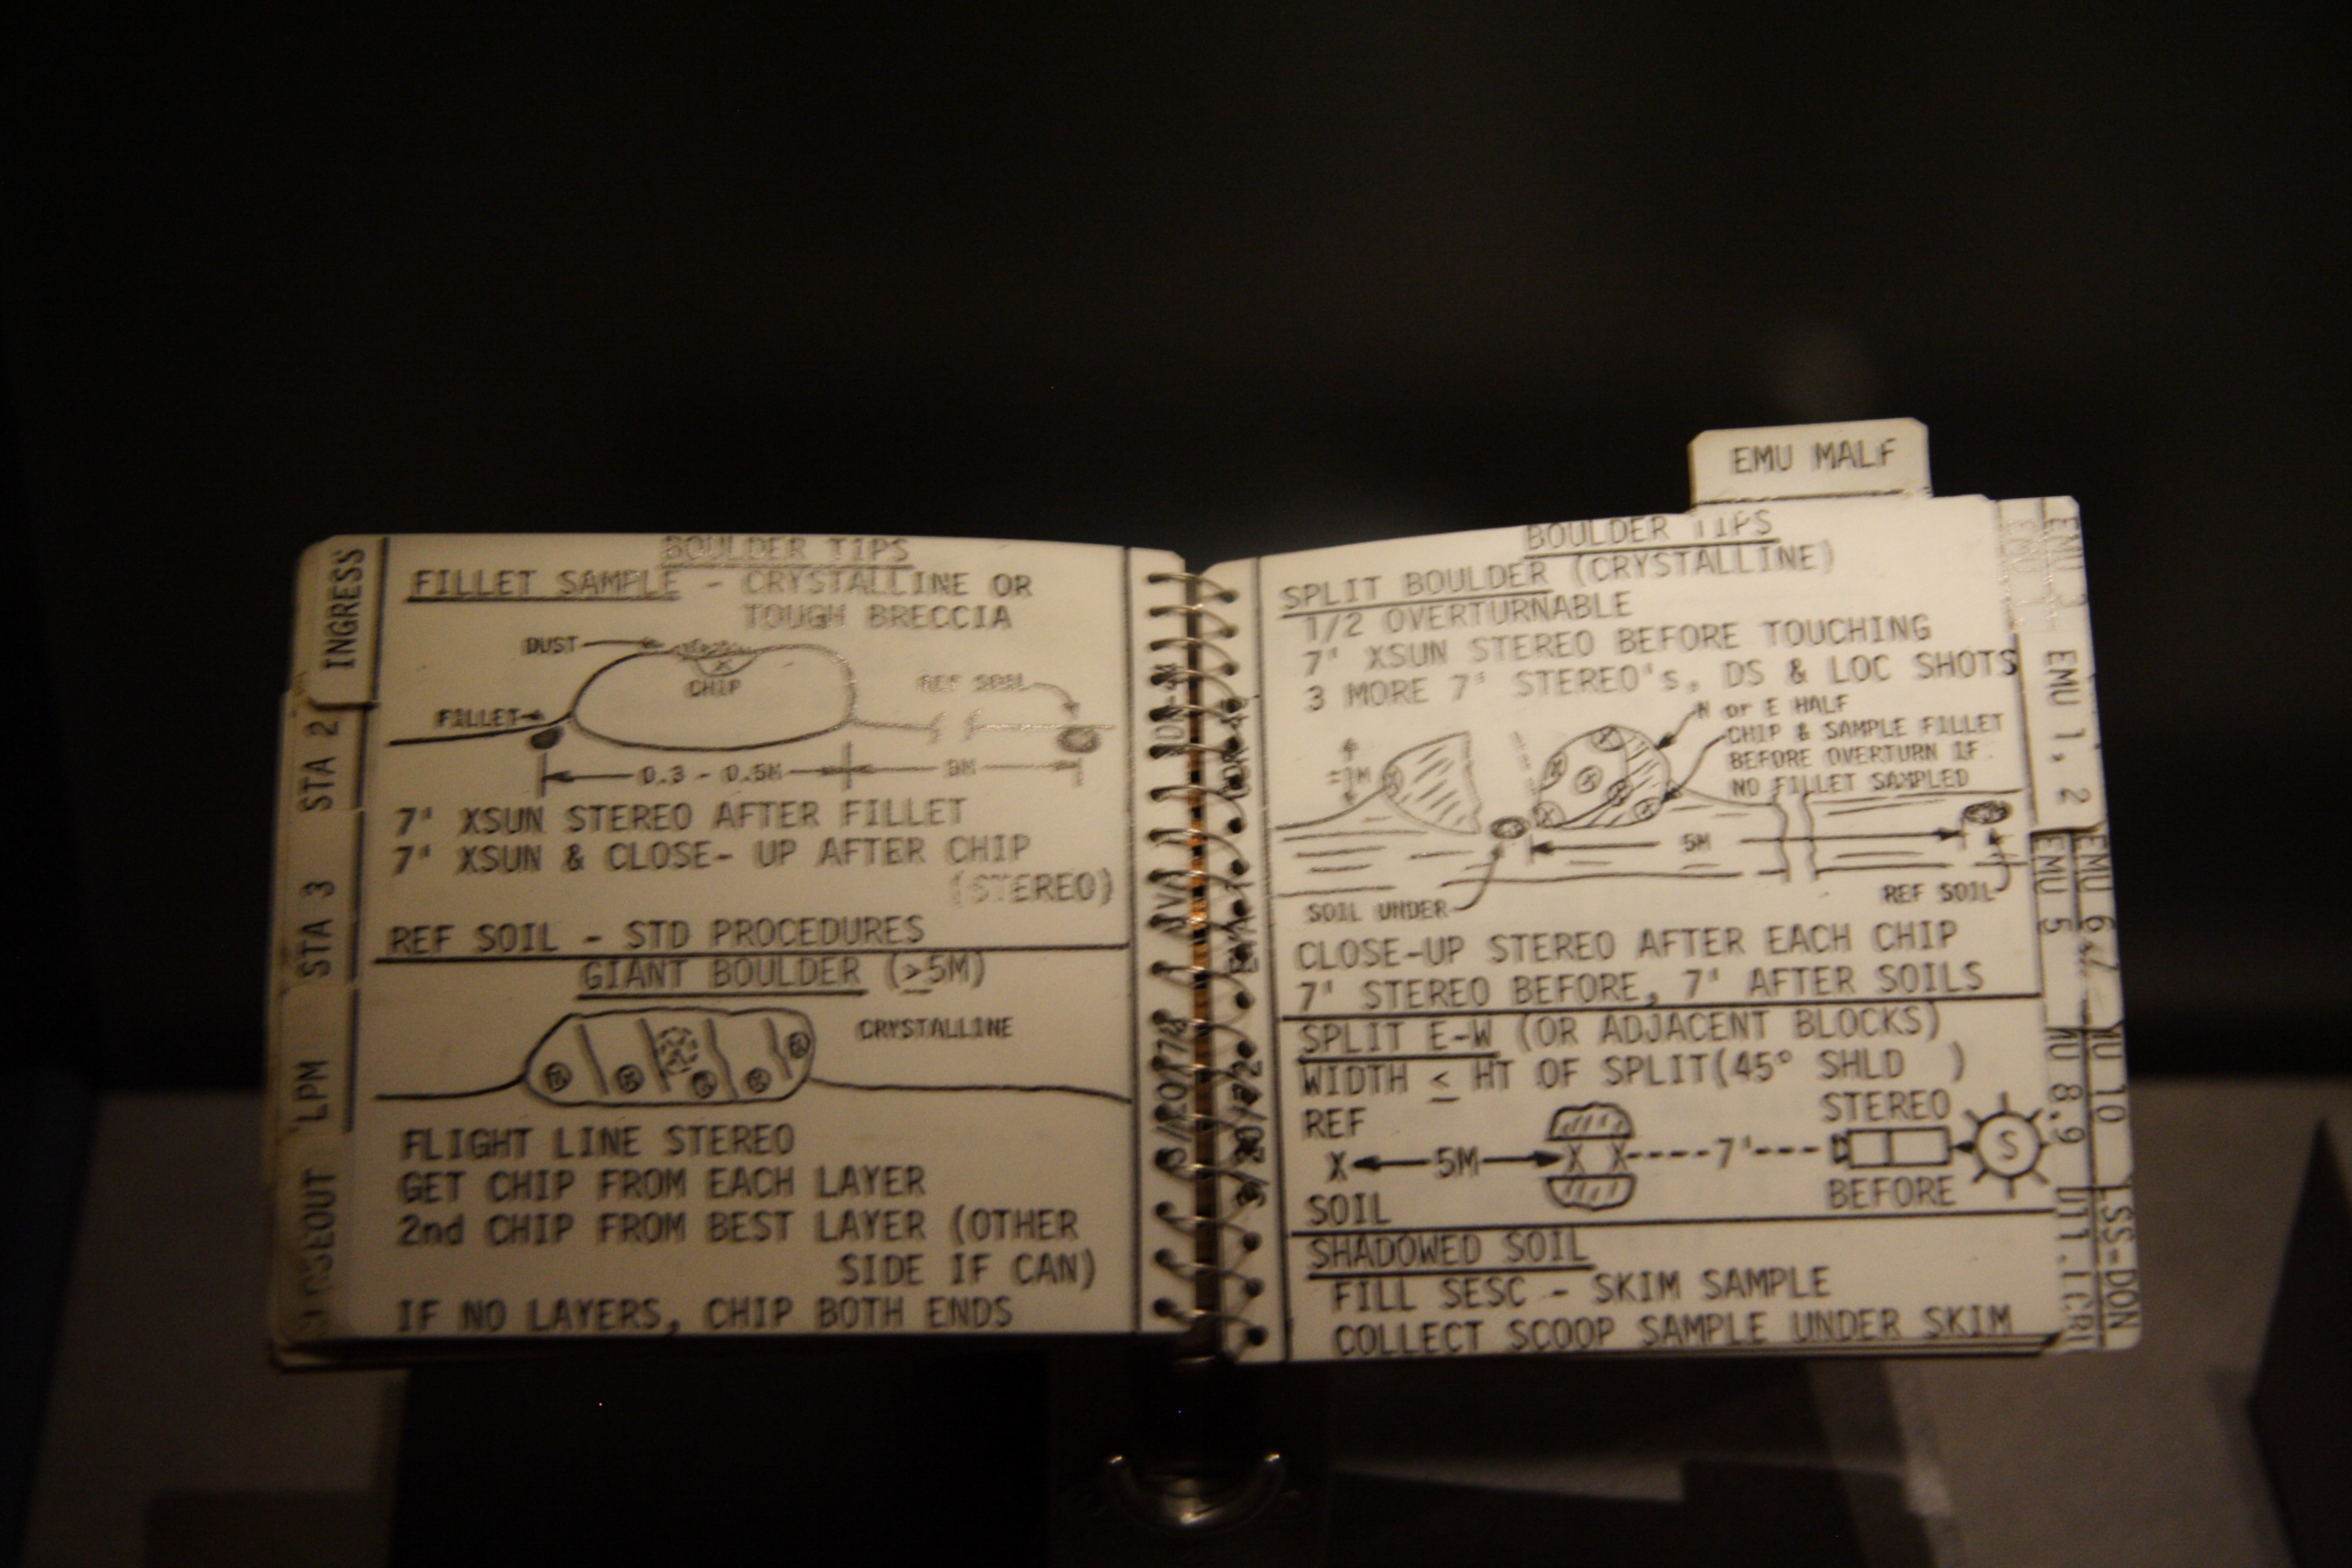 EMU MALF
INGRESS
STA 2
STA 3
LPM
BOULDER TIPS
FILLET SAMPLE - CRYSTALLINE OR
TOUGH BRECCIA
DUST
CHIP
REF SOIL
FILLET
0.3 - 0.5M
5M
7' XSUN STEREO AFTER FILLET
7' XSUN & CLOSE- UP AFTER CHIP
(STEREO)
REF SOIL - STD PROCEDURES
GIANT BOULDER (≥5M)
CRYSTALLINE
FLIGHT LINE STEREO
GET CHIP FROM EACH LAYER
2nd CHIP FROM BEST LAYER (OTHER
SIDE IF CAN)
IF NO LAYERS, CHIP BOTH ENDS
3/20/72
BOULDER TIPS
SPLIT BOULDER (CRYSTALLINE)
1/2 OVERTURNABLE
7' XSUN STEREO BEFORE TOUCHING
3 MORE 7' STEREO's, DS & LOC SHOTS
N or E HALF
CHIP & SAMPLE FILLET
BEFORE OVERTURN IF
NO FILLET SAMPLED
5M
SOIL UNDER
REF SOIL
CLOSE-UP STEREO AFTER EACH CHIP
7' STEREO BEFORE, 7' AFTER SOILS
SPLIT E-W (OR ADJACENT BLOCKS)
WIDTH ≤ HT OF SPLIT(45° SHLD )
REF
STEREO
X 5M X X 7' S
BEFORE
SOIL
SHADOWED SOIL
FILL SESC - SKIM SAMPLE
COLLECT SCOOP SAMPLE UNDER SKIM
3/20/72
EMU 3
EMU 1, 2
EMU 5
EMU 6